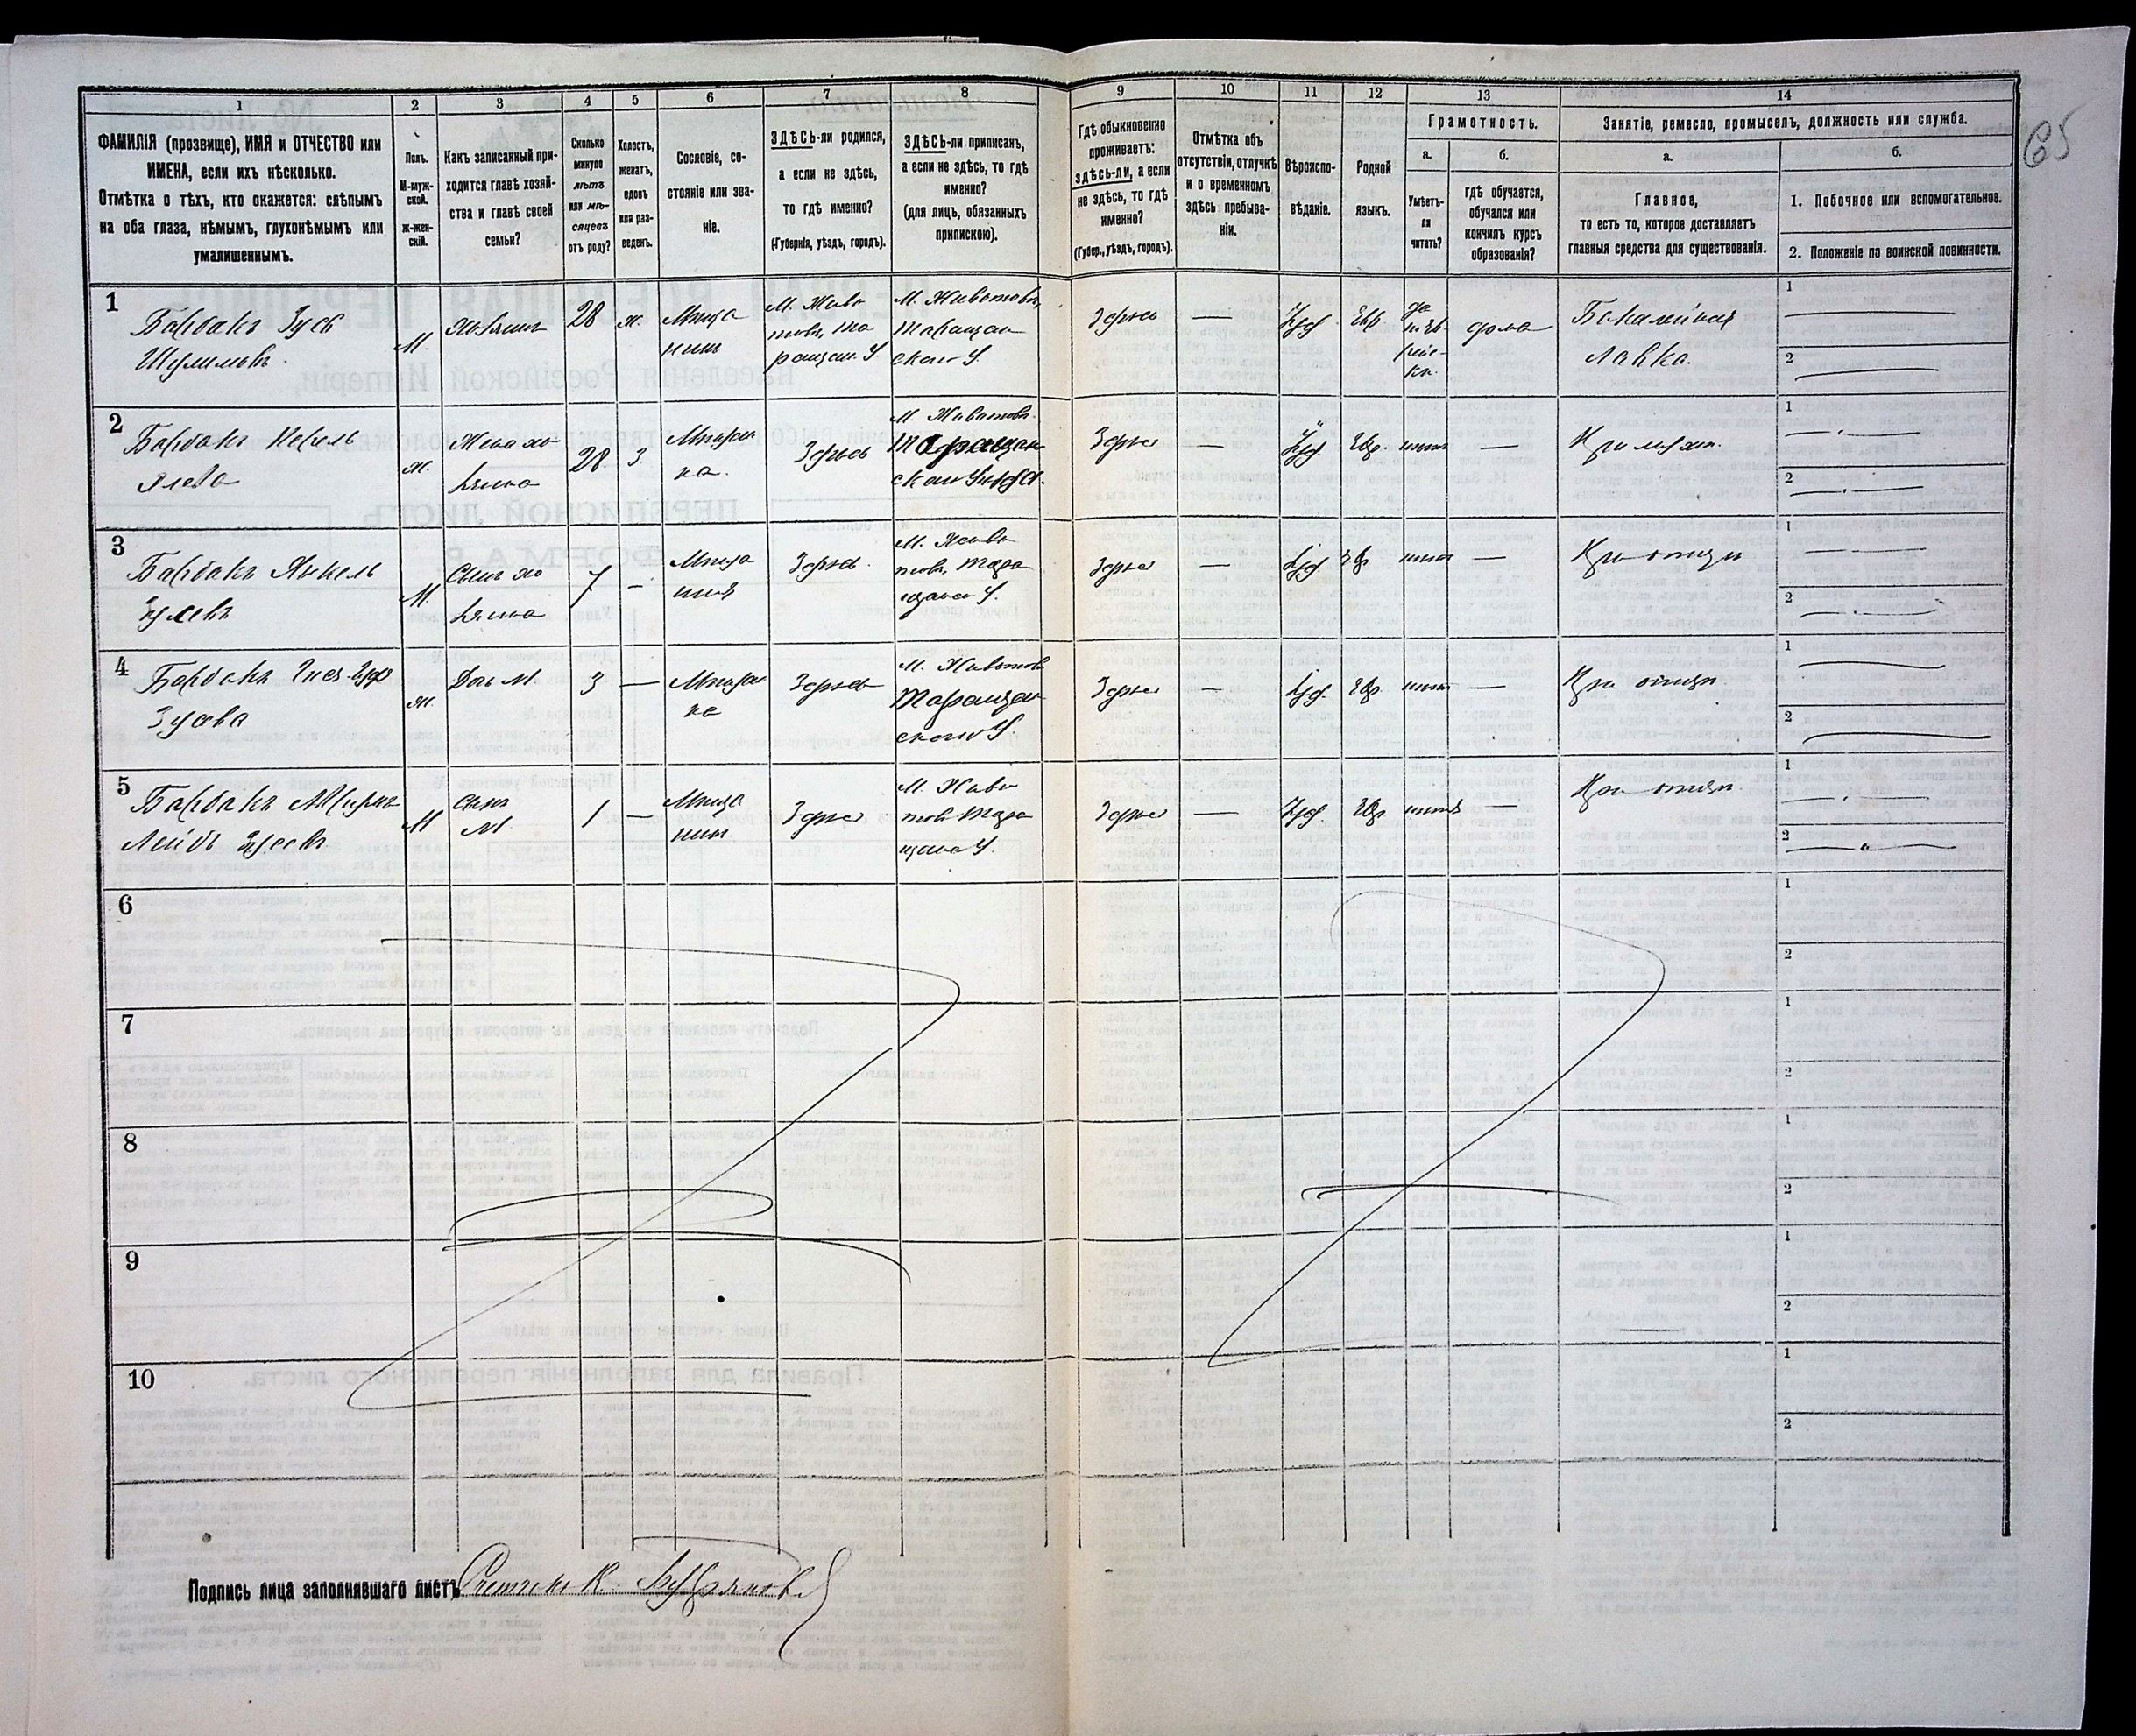 1
2
3
4
5
6
7
8
9
10
11
12
13
14
65
ФАМИЛІЯ (прозвище), ИМЯ и ОТЧЕСТВО или
ИМЕНА, если ихъ нѣсколько.
Отмѣтка о тѣхъ, кто окажется: слѣпымъ
на оба глаза, нѣмымъ, глухонѣмымъ или
умалишеннымъ.
Полъ.
М-муж-
ской.
Ж-жен-
скій.
Какъ записанный при-
ходится главѣ хозяй-
ства и главѣ своей
семьи?
Сколько
минуло
лѣтъ
или мѣ-
сяцевъ
отъ роду?
Холостъ,
женатъ,
вдовъ
или раз-
веденъ.
Сословіе, со-
стояніе или зва-
ніе.
ЗДѢСЬ-ли родился,
а если не здѣсь,
то гдѣ именно?
(Губернія, уѣздъ, городъ).
ЗДѢСЬ-ли приписан,
а если не здѣсь, то гдѣ
именно?
(для лицъ, обязанныхъ
припискою).
Гдѣ обыкновенно
проживаетъ:
здѣсь-ли, а если
не здѣсь, то гдѣ
именно?
(Губер., уѣздъ, городъ).
Отмѣтка объ
отсутствіи, отлучкѣ
и о временномъ
здѣсь пребыва-
ніи.
Вѣроиспо-
вѣданіе.
Родной
языкъ.
Грамотность.
а.
Умѣетъ-
ли
читать?
б.
гдѣ обучается,
обучался или
кончилъ курсъ
образованія?
Занятіе, ремесло, промыселъ, должность или служба.
а.
Главное,
то есть то, которое доставляетъ
главныя средства для существованія.
б.
1. Побочное или вспомогательное.
2. Положеніе по воинской повинности.
1
Барбакъ Зусь
М.
28
ж.
Мѣща
нинъ
М. Живо
товъ, Та
ращан. У
М. Животовъ,
Таращан
скаго У.
Здѣсь
—
Іуд
Евр
дома
Бакалейная
Лавка.
1
2
2
Барбакъ
ж.
Жена хо
зяина
28
З
Мѣщан
ка.
Здѣсь
М. Животовъ.
Таращан
скаго Уѣзда.
Здѣсь
—
Іуд.
Евр.
нѣтъ
—
При мужѣ.
1
2
3
Барбакъ Янкель
Зусевъ
М.
Сынъ хо
зяина
7
—
Мѣща
нинъ
Здѣсь.
М. Живо
товъ, Тара
щанск У.
Здѣсь
—
Іуд
Евр
нѣтъ
—
При отцѣ
1
2
4
Барбакъ
Зусева
ж.
Дочь М.
3
—
Мѣщан
ка
Здѣсь
М. Животов
Таращан
скаго У.
Здѣсь
—
Іуд.
Евр.
нѣтъ
—
При отцѣ.
1
2
5
Барбакъ
Лейбъ Зусевъ
М
сынъ
М.
1
—
Мѣща
нинъ
Здѣсь
М. Живо
товъ Тара
щанск У.
Здѣсь
—
Іуд.
Евр
нѣтъ
—
При отцѣ.
1
2
6
1
2
7
1
2
8
1
2
9
1
2
10
1
2
Подпись лица заполнявшаго листъ